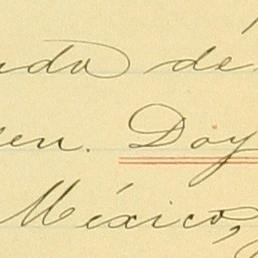 da de
en. Doy
México,